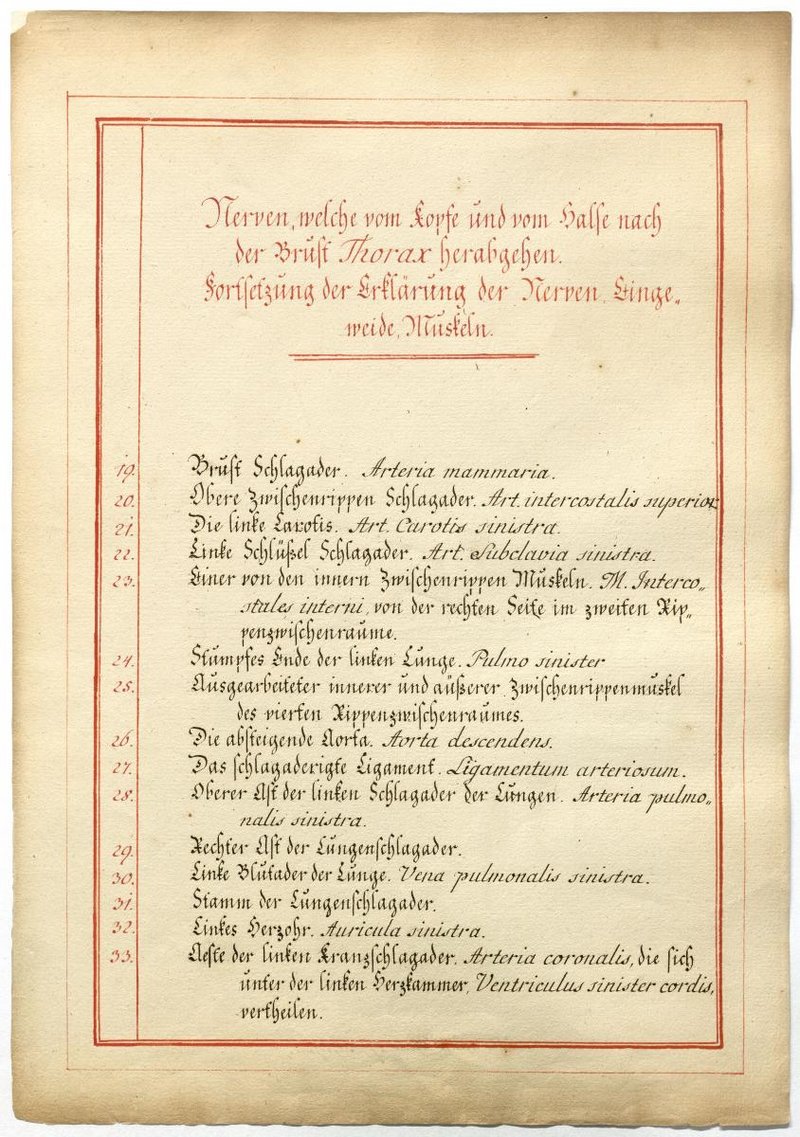 Nerven, welche vom Kopfe und vom Halse nach
der Brust Thorax herabgehen.
Fortsetzung der Erklärung der Nerven, Einge„
weide, Muskeln.
19. Brust Schlagader. Arteria mammaria.
20. Obere Zwischenrippen Schlagader. Art. intercostalis superior.
21. Die linke Carotis. Art. Carotis sinistra.
22. Linke Schlüßel Schlagader. Art. Subclavia sinistra.
23. Einer von den innern Zwischenrippen Muskeln. M. Interco„
stales interni, von der rechten Seite im zweiten Rip„
penzwischenraume.
24. Stumpfes Ende der linken Lunge. Pulmo sinister
25. Ausgearbeiteter innerer und äußerer Zwischenrippenmuskel
des vierten Rippenzwischenraumes.
26. Die absteigende Aorta. Aorta descendens.
27. Das schlagaderigte Ligament. Ligamentum arteriosum.
28. Oberer Ast der linken Schlagader der Lungen. Arteria pulmo„
nalis sinistra.
29. Rechter Ast der Lungenschlagader.
30. Linke Blutader der Lunge. Vena pulmonalis sinistra.
31. Stamm der Lungenschlagader.
32. Linkes Herzohr. Auricula sinistra.
33. Aeste der linken Kranzschlagader. Arteria coronalis, die sich
unter der linken Herzkammer, Ventriculus sinister cordis,
vertheilen.